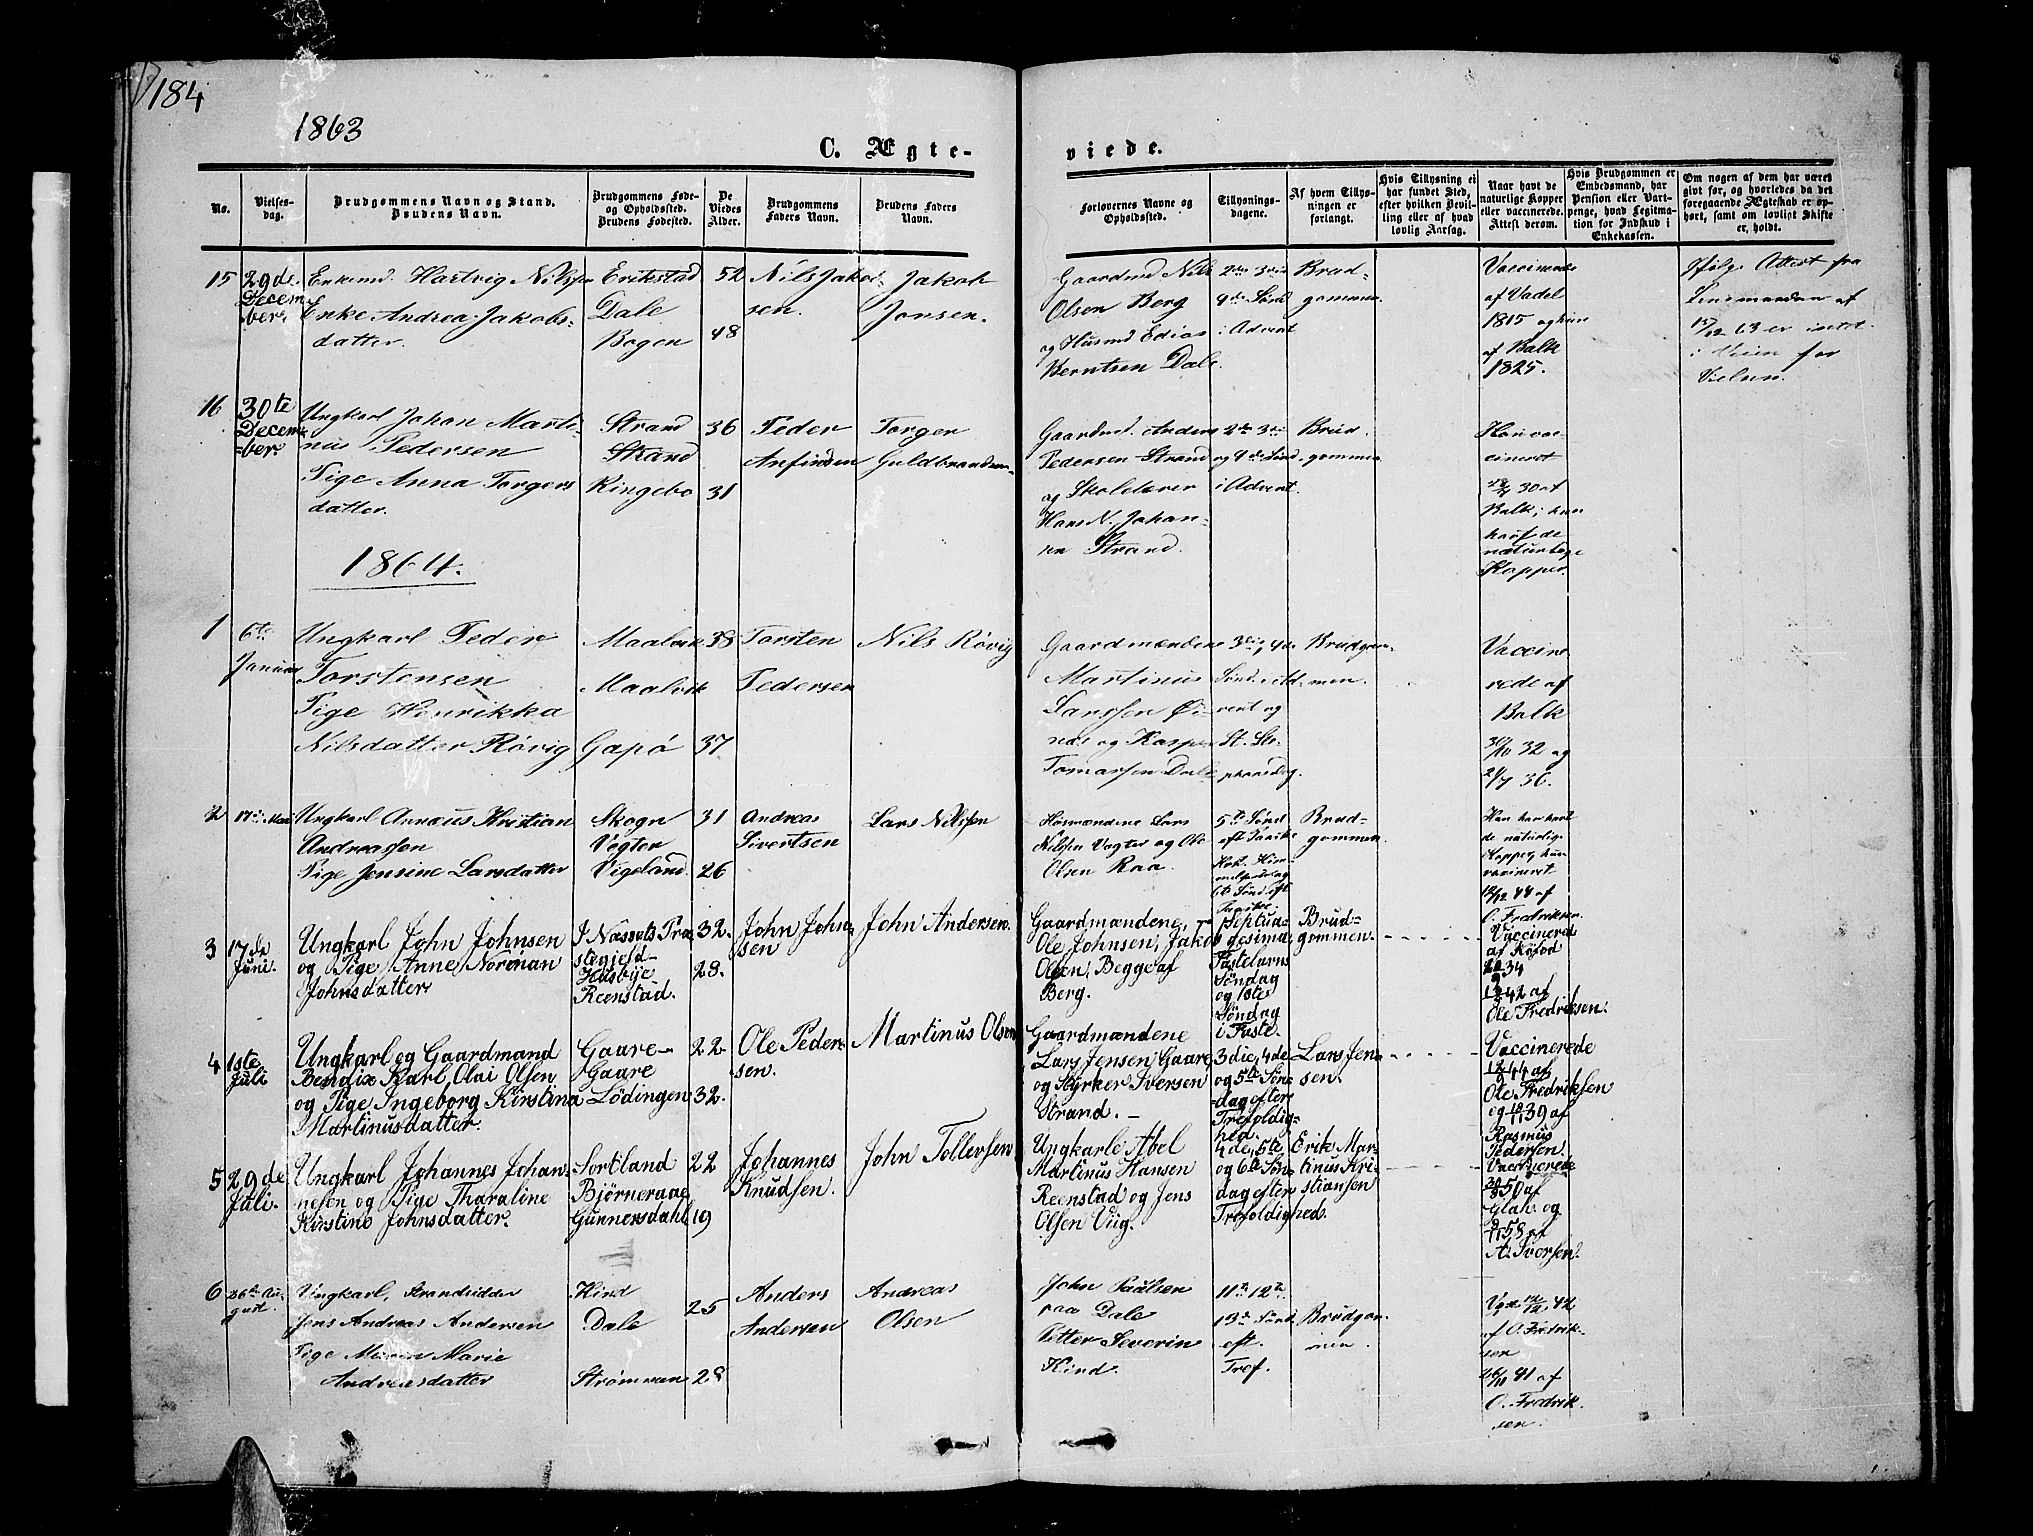 184
1863
C. Ægte-
viede.
No.
Vielses-
dag.
Brudgommens Navn og Stand.
Brudens Navn.
Brudgommens Føde-
og Opholdssted.
Brudens Fødested.
De
Viedes
Alder.
Brudgommens
Faders Navn.
Brudens Faders
Navn.
Forlovernes Navne og
Opholdssted.
Tillysnings-
dagene.
Af hvem Tillys-
ningen er
forlangt.
Hvis Tillysning ei
har fundet Sted,
efter hvilken Bevil-
ling eller af hvad
lovlig Aarsag.
Naar havt de
naturlige Kopper
eller vaccinerede.
Attest derom.
Hvis Brudgommen er
Embedsmand, har
Pension eller Vart-
penge, hvad Legitima-
tion for Indskud i
Enkekassen.
Om nogen af dem har været
givt før, og hvorledes da det
foregaaende Ægteskab er op-
hørt, samt om lovligt Skifte
er, holdt.
15
29de
Decem-
ber.
Enkemd. Hartvig Nilssen
Enke Andrea Jakobs-
datter.
Erikstad
Dale
Bogen
52
48
Nils Jakob-
sen.
Jakob
Jonsen.
Gaardmd Nils
Olsen Berg
og Husmd Edias
Berntsen Dale.
2den 3die
4de Sønd
i Advent
Brud-
gommen.
Vaccinerede
af Vadel
1815 og hun
af Balk
1825.
Ifølge Attest fra
Lensmanden af
15/12 63 er intet
i Veien for
Vielsen.
16
30te
Decem-
ber.
Ungkarl Johan Marti-
nus Pedersen
Pige Anna Torgers
datter.
Strand
Strand
Ringebo
36
31
Peder
Anfinsen
Torger
Guldbrandsen
Gaardmd. Anders
Pedersen Strand
og Skolelærer
Hans N. Johan-
sen Strand.
2den 3die
og 4de Sønd.
i Advent.
Brud-
gommen
Han vac-
cineret
30 af
Balk; hun
havt de
naturlige
Kopper.
1864.
1
6te
Januar
Ungkarl Peder
Torstensen
Pige Henrikka
Nilsdatter Røvig
Maalvik
Maalvik
Gapø
38
37
Torsten
Pedersen
Nils Røvig
Gaardmændene
Martinus
Larssen Øi-
næs og Kasper
Tomassen Dale
3die, 4de
Sønd. i Ad-
vent og
St. Ste-
phansdag.
Brudgom-
men.
Vaccine-
rede af
Balk
30/11 32 og
2/7 36.
2
17de Mai
Ungkarl Annæus Kristian
Andreassen
Pige Jensine Larsdatter
Skogn
Vegter
Vigeland.
31
26
Andreas
Sivertsen
Lars Nilssen
Husmændene Lars
Nilssen Vegter og Ole
Olsen Raa.
5te Sønd
eft Paaske
Brud-
gommen.
Han har havt
de naturlige
Kopper, hun
vaccineret
12/12 44 af
O. Fredriksen.
3
17de
Juni.
Ungkarl John Johnsen
og Pige Anne Norman
Johnsdatter
I Næssets Præ-
stegjeld-
Husbye
Reenstad.
32.
28.
John John-
sen
John Andersen.
Gaardmændene,
Ole Johnsen, Jakob
Olsen, Begge af
Berg.
Septua-
gesima,
Fastelavns
Søndag
og 1ste
Søndag
i Faste.
Brud-
gommen.
Vaccinerede
af Kofod
34
42 af
Ole Fredriksen.
4
1ste
Juli
Ungkarl og Gaardmand
Bendix Karl Olai Olsen
og Pige Ingeborg Kirstina
Martinusdatter.
Gaare-
Gaare
Lödingen
22.
32.
Ole Peder-
sen.
Martinus Olsen
Gaardmændene
Lars Jensen Gaare,
og Styrker Iversen
Strand. -
3die, 4de
og 5te Søn-
dag efter
Trefoldig-
hed.
Lars Jen-
sen.
Vaccinerede
44 af
Ole Fredriksen
og 39 af
Rasmus
Pedersen.
5
29de
Juli.
Ungkarl Johannes Johan-
nesen og Pige Tharaline
Kirstine Johnsdatter.
Sortland
Bjørneraae
Gunnersdahl
22
19
Johannes
Knudsen.
John Tollevsen
Ungkarle Abel
Martinus Hansen
Reenstad og Jens
Olsen Viig.
4de, 5te
og 6te Søn-
dag efter
Trefoldighed.
Erik Mar-
tinus Kri-
stiansen
Vaccinerede
50 af
Glah. og
58 af
A. Iversen.
6
26de Au-
gust.
Ungkarl, Strandsidder
Jens Andreas Andersen
Pige Maren Marie
Andreasdatter
Hind
Dale
Strømman
25
28
Anders
Andersen
Andreas
Olsen
John Paulsen
paa Dale
Petter Severin
Hind.
11te 12te
13de Sønd
eft.
Tref.
Brudgom-
men.
12/12 42
af O. Fredrik-
sen
26/11 41 af
O. Fredrik-
sen.